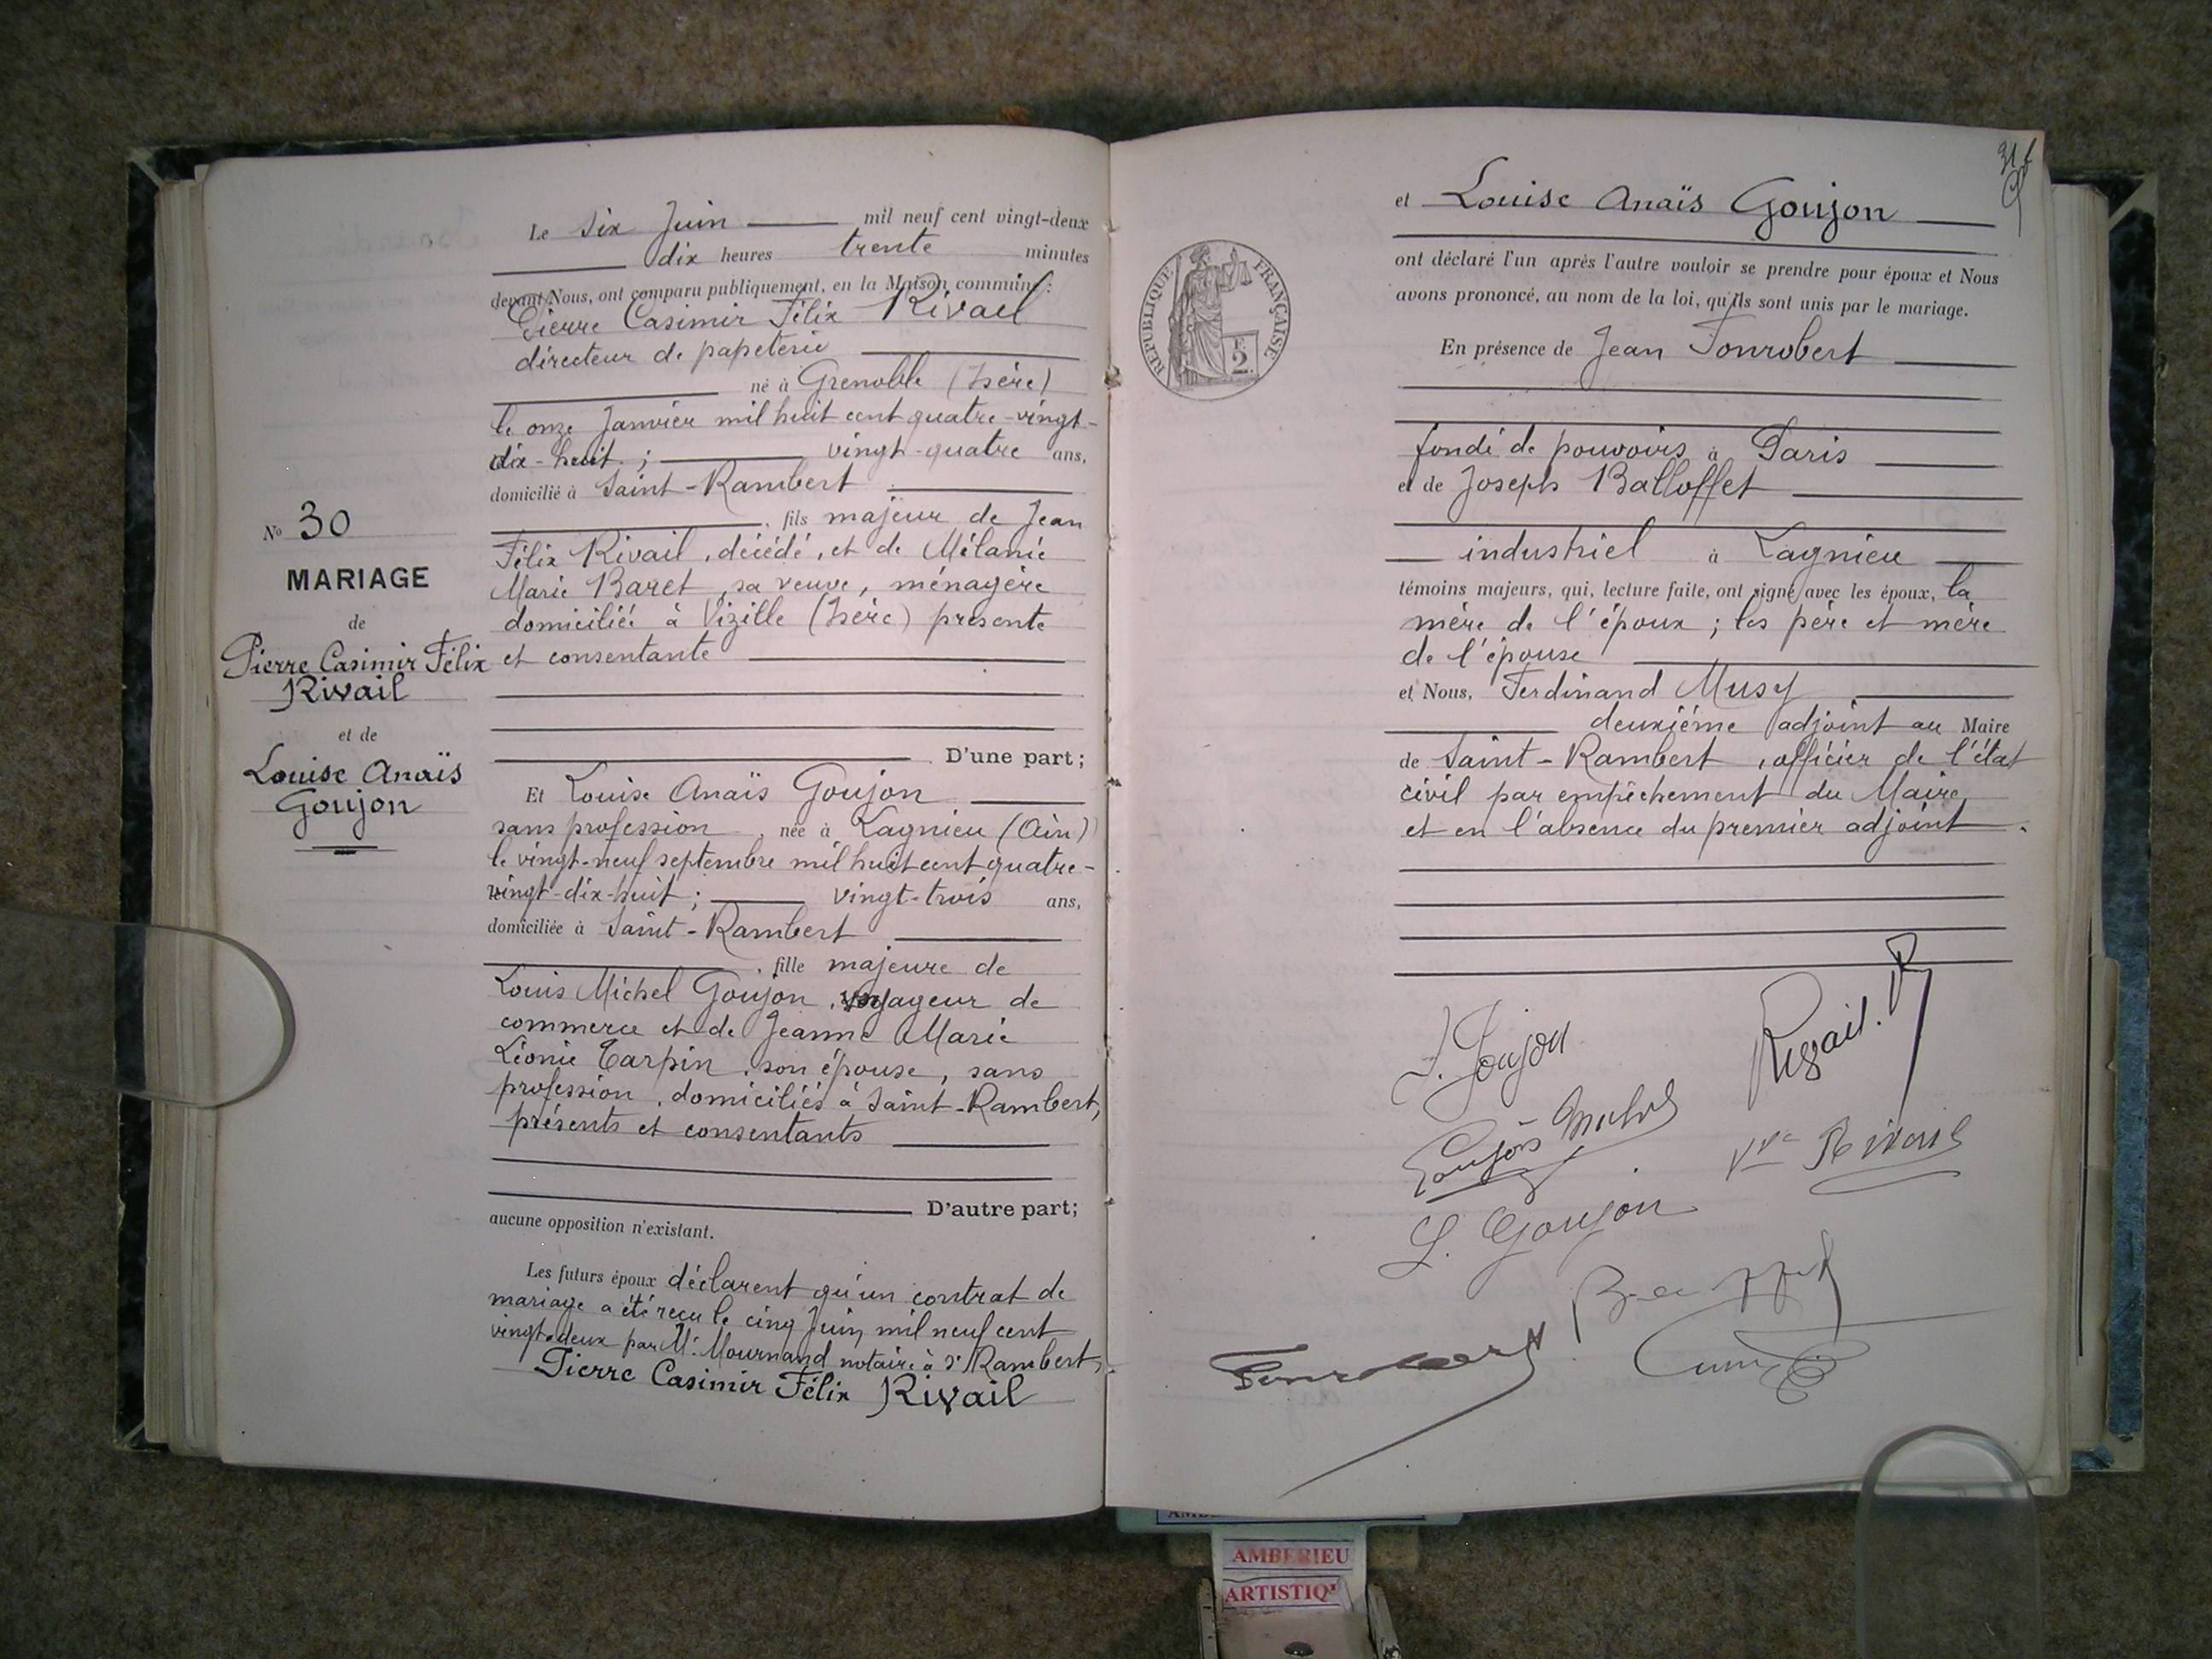 Le six Juin mil neuf cent vingt-deux
dix heures trente minutes
devant Nous, ont comparu publiquement, en la Maison commune :
Pierre Casimir Félix Rivail
directeur de papeterie
né à Grenoble (Isère)
le onze Janvier mil huit cent quatre-vingt-
dix-huit ; vingt-quatre ans,
domicilié à Saint-Rambert
, fils majeur de Jean
Félix Rivail, décédé, et de Mélanie
Marie Baret, sa veuve, ménagère
domiciliée à Vizille (Isère) présente
et consentante
D'une part;
No 30
MARIAGE
de
Pierre Casimir Félix
Rivail
et de
Louise Anaïs
Goujon
Et Louise Anaïs Goujon
sans profession, née à Lagnieu (Ain)
le vingt-neuf septembre mil huit cent quatre-
vingt-dix-huit ; vingt-trois ans,
domiciliée à Saint-Rambert
, fille majeure de
Louis Michel Goujon, voyageur de
commerce et de Jeanne Marie
Léonie Tarpin, son épouse, sans
profession, domiciliés à Saint-Rambert,
présents et consentants
D'autre part;
aucune opposition n'existant.
Les futurs époux déclarent qu'un contrat de
mariage a été reçu le cinq Juin mil neuf cent
vingt-deux par Me Mournand notaire à St Rambert,
Pierre Casimir Félix Rivail
31
et Louise Anaïs Goujon
ont déclaré l'un après l'autre vouloir se prendre pour époux et Nous
avons prononcé, au nom de la loi, qu'ils sont unis par le mariage.
RÉPUBLIQUE FRANÇAISE
F.
2.
En présence de Jean Fonrobert
fondé de pouvoirs à Paris
et de Joseph Balloffet
industriel à Lagnieu
témoins majeurs, qui, lecture faite, ont signé avec les époux, la
mère de l'époux ; les père et mère
de l'épouse
et Nous, Ferdinand Musy
deuxième adjoint au Maire
de Saint-Rambert, officier de l'état
civil par empêchement du Maire
et en l'absence du premier adjoint.
Goujon
Rivail. P
Goujon
Vve Rivail
L. Goujon
Fonrobert
AMBERIEU
ARTISTIQ